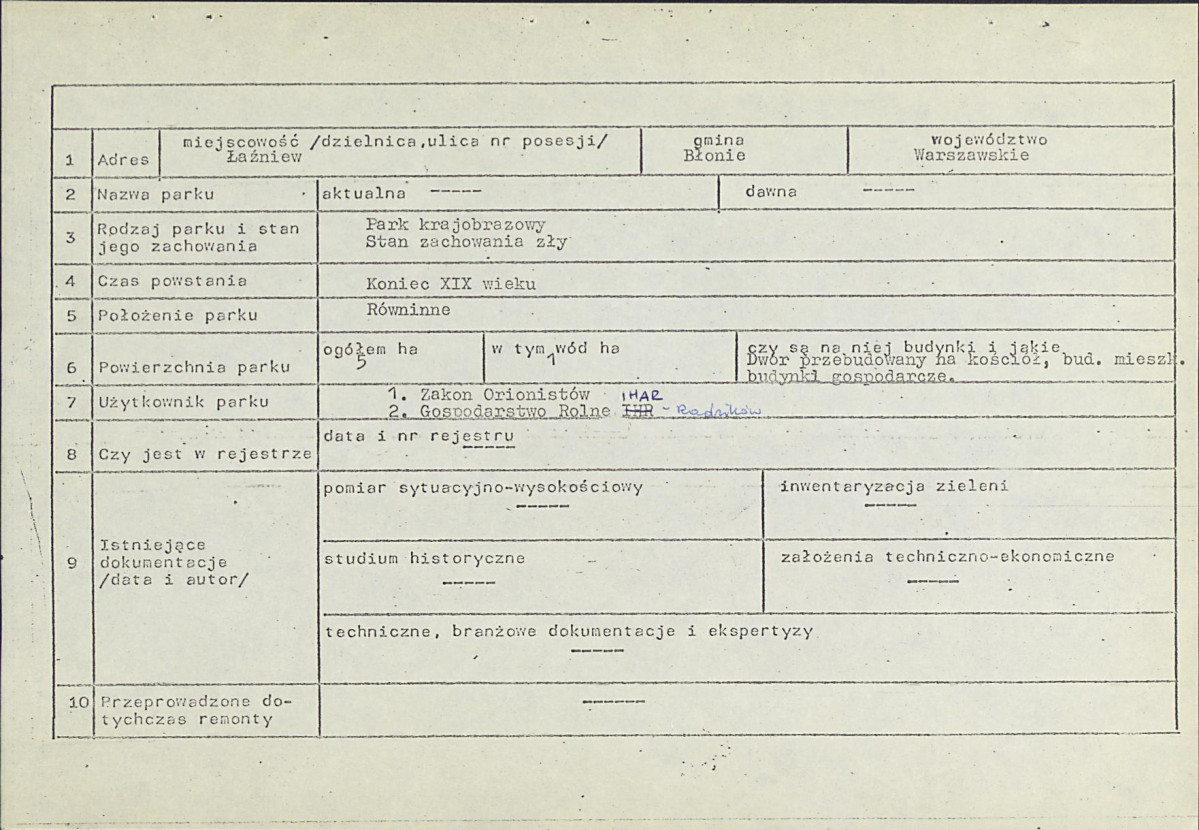 1 Adres miejscowość /dzielnica,ulica nr posesji/ gmina województwo
Łaźniew Błonie Warszawskie
2 Nazwa parku aktualna ----- dawna -----
3 Rodzaj parku i stan jego zachowania
Park krajobrazowy
Stan zachowania zły
4 Czas powstania Koniec XIX wieku
5 Położenie parku Równinne
6 Powierzchnia parku
ogółem ha
5
w tym wód ha
1
czy są na niej budynki i jakie
Dwór przebudowany na kościół, bud. mieszk.
budynki gospodarcze.
7 Użytkownik parku
1. Zakon Orionistów IHAR
2. Gospodarstwo Rolne IHR - Radzików
8 Czy jest w rejestrze
data i nr rejestru
-----
9 Istniejące
dokumentacje
/data i autor/
pomiar sytuacyjno-wysokościowy
-----
inwentaryzacja zieleni
-----
studium historyczne
-----
założenia techniczno-ekonomiczne
-----
techniczne, branżowe dokumentacje i ekspertyzy
-----
10 Przeprowadzone do-
tychczas remonty
-----